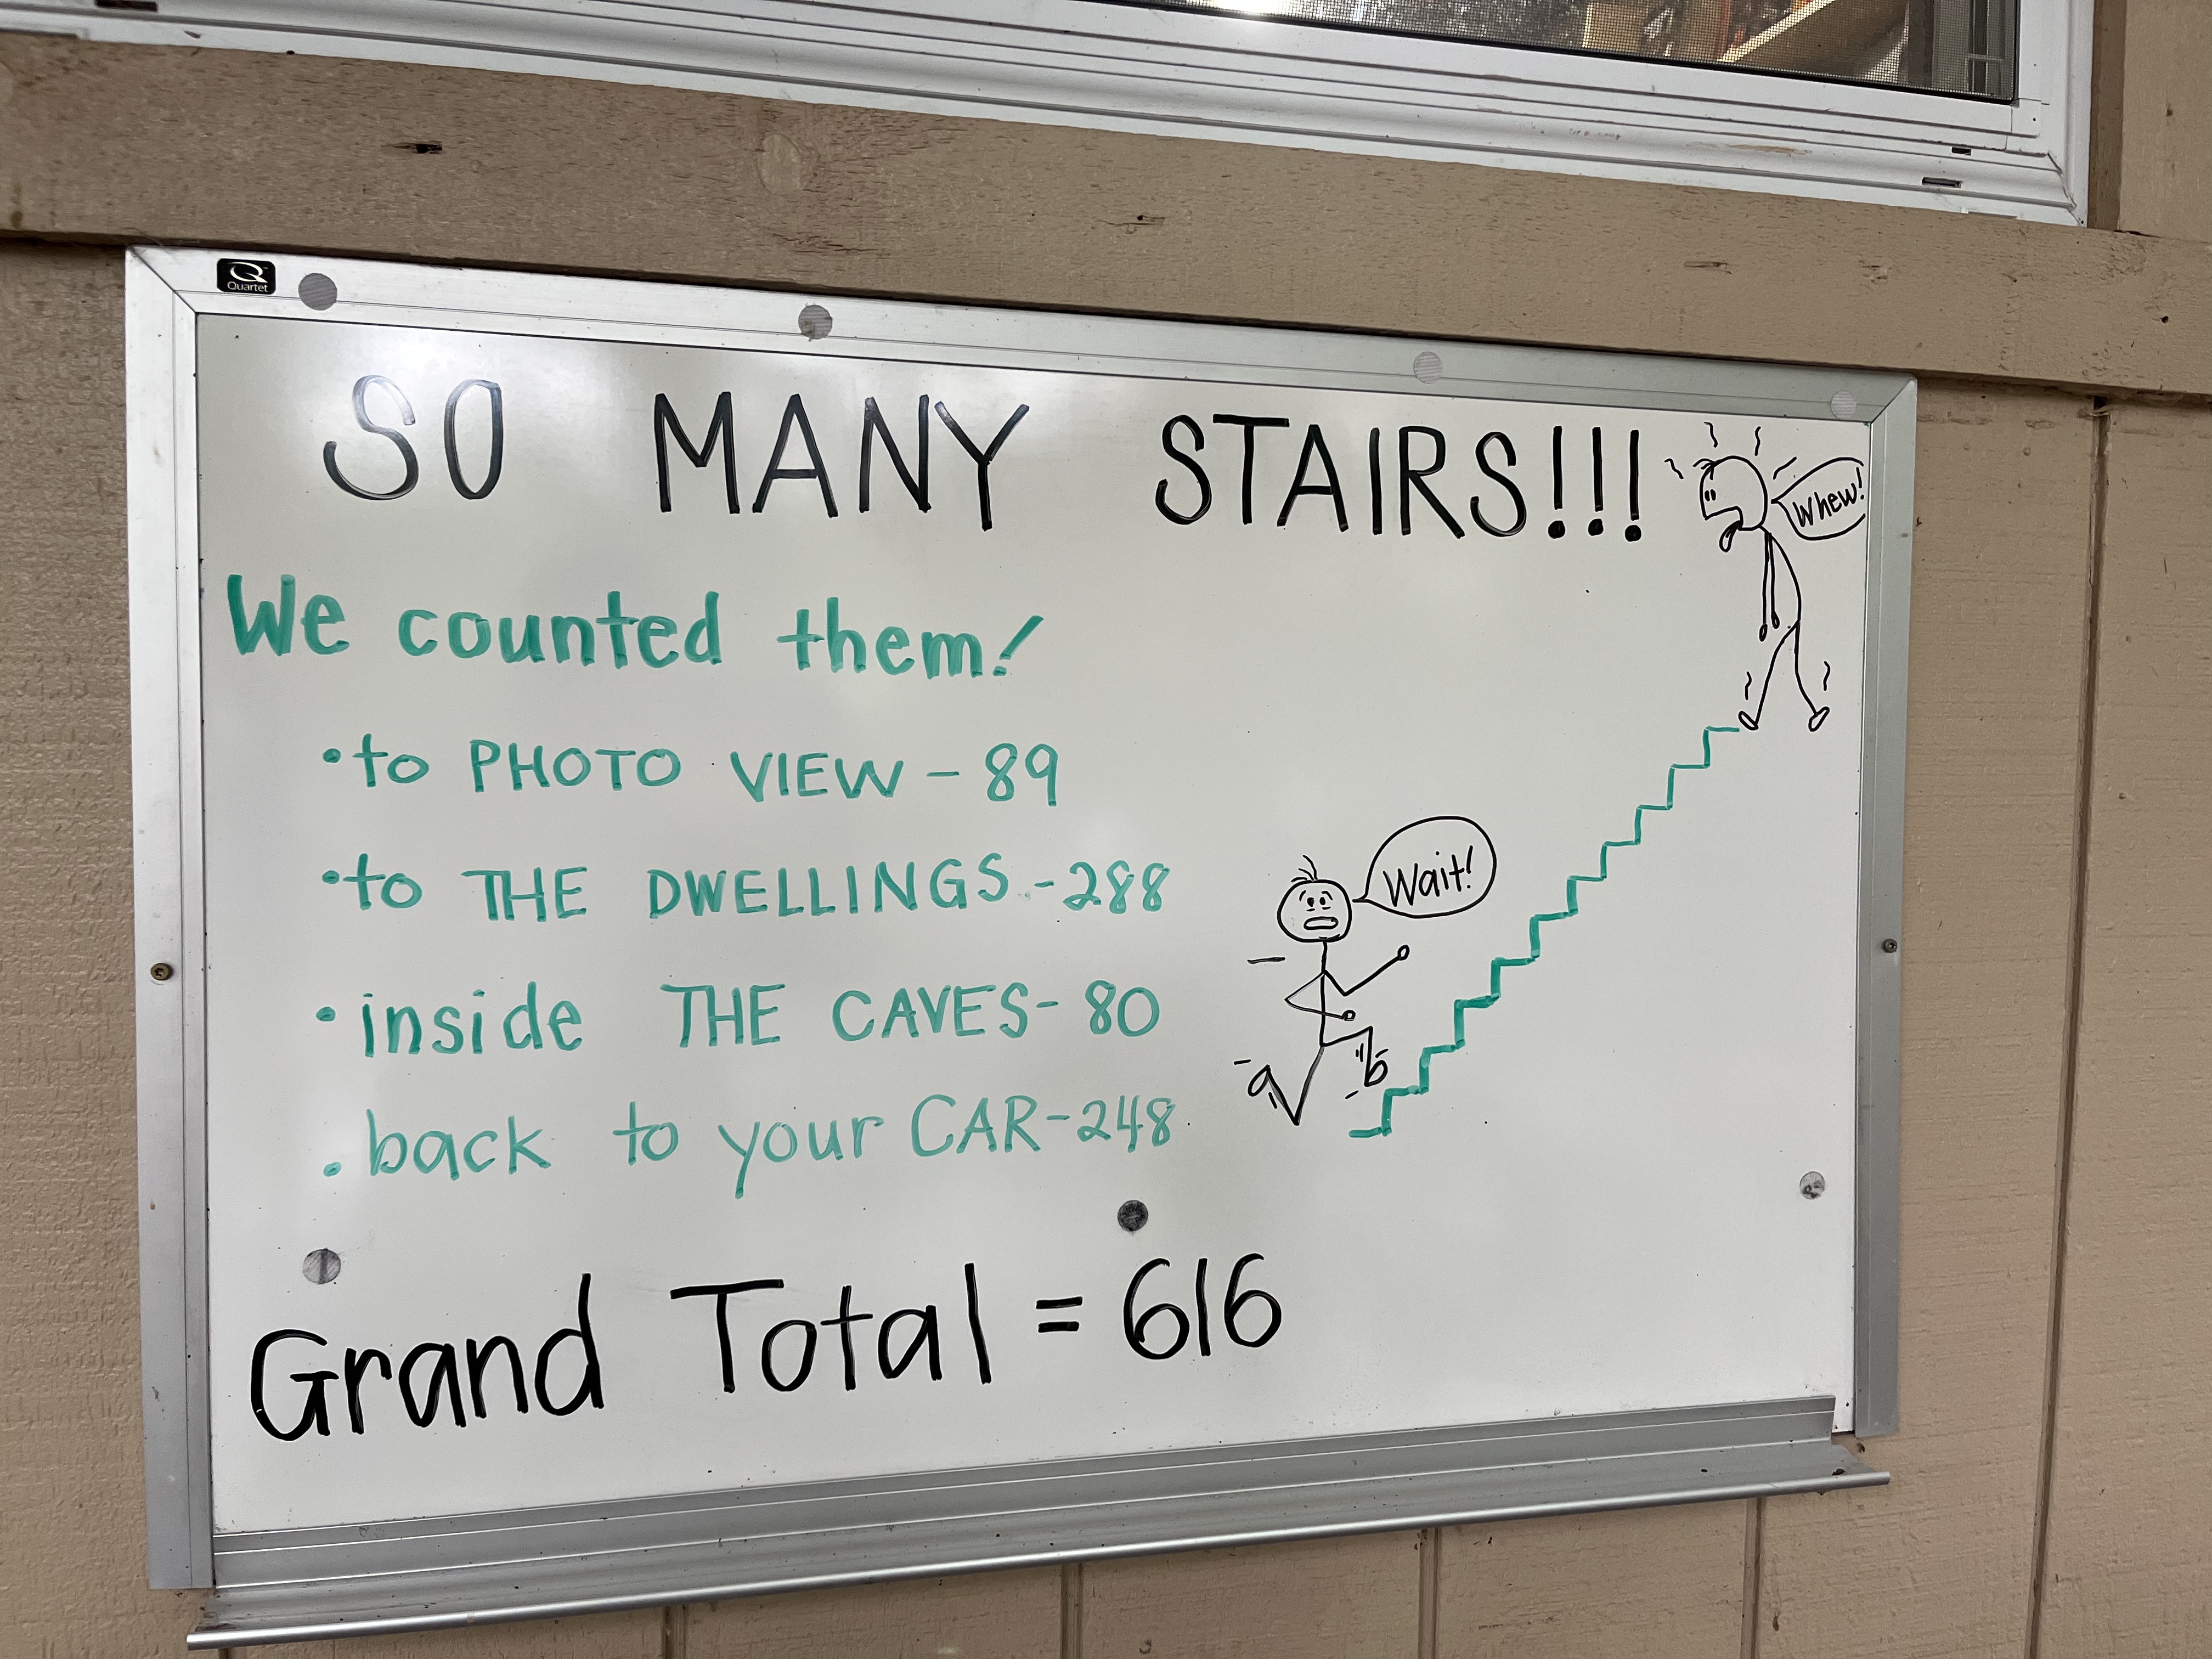 Quartet
SO MANY STAIRS!!!
Whew!
We counted them!
• to PHOTO VIEW - 89
• to THE DWELLINGS - 288
Wait!
• inside THE CAVES - 80
• back to your CAR - 248
Grand Total = 616